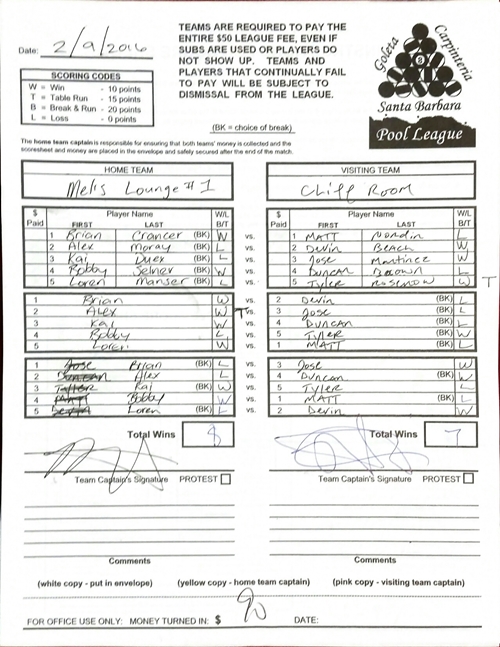 TEAMS ARE REQUIRED TO PAY THE
ENTIRE $50 LEAGUE FEE, EVEN IF
SUBS ARE USED OR PLAYERS DO
NOT SHOW UP. TEAMS AND
PLAYERS THAT CONTINUALLY FAIL
TO PAY WILL BE SUBJECT TO
DISMISSAL FROM THE LEAGUE.
Date: 2/9/2016
SCORING CODES
W = Win - 10 points
T = Table Run - 15 points
B = Break & Run - 20 points
L = Loss - 0 points
Goleta
Carpinteria
Santa Barbara
Pool League
(BK = choice of break)
The home team captain is responsible for ensuring that both teams' money is collected and the
scoresheet and money are placed in the envelope and safely secured after the end of the match.
HOME TEAM VISITING TEAM
Mel's Lounge #1 Cliff Room
$ Paid Player Name FIRST LAST W/L B/T $ Paid Player Name FIRST LAST W/L B/T
1 Brian Crancer (BK) W vs. 1 MATT Nordin L
2 Alex Moray (BK) L vs. 2 Devin Beach W
3 Kai Duex (BK) L vs. 3 Jose Martinez W
4 Bobby Selner (BK) W vs. 4 Duncan Brown L
5 Loren Manser (BK) L vs. 5 Tyler Rosenow W T
1 Brian W vs. 2 Devin (BK) L
2 Alex W T vs. 3 Jose (BK) L
3 Kai W vs. 4 Duncan (BK) L
4 Bobby L vs. 5 Tyler (BK) W
5 Loren W vs. 1 MATT (BK) L
1 Jose Brian (BK) L vs. 3 Jose W
2 Duncan Alex L vs. 4 Duncan (BK) W
3 Tyler Kai (BK) W vs. 5 Tyler L
4 Matt Bobby W vs. 1 MATT (BK) L
5 Devin Loren (BK) L vs. 2 Devin W
Total Wins 8 Total Wins 7
Team Captain's Signature PROTEST Team Captain's Signature PROTEST
Comments Comments
(white copy - put in envelope) (yellow copy - home team captain) (pink copy - visiting team captain)
FOR OFFICE USE ONLY: MONEY TURNED IN: $ 90 DATE: